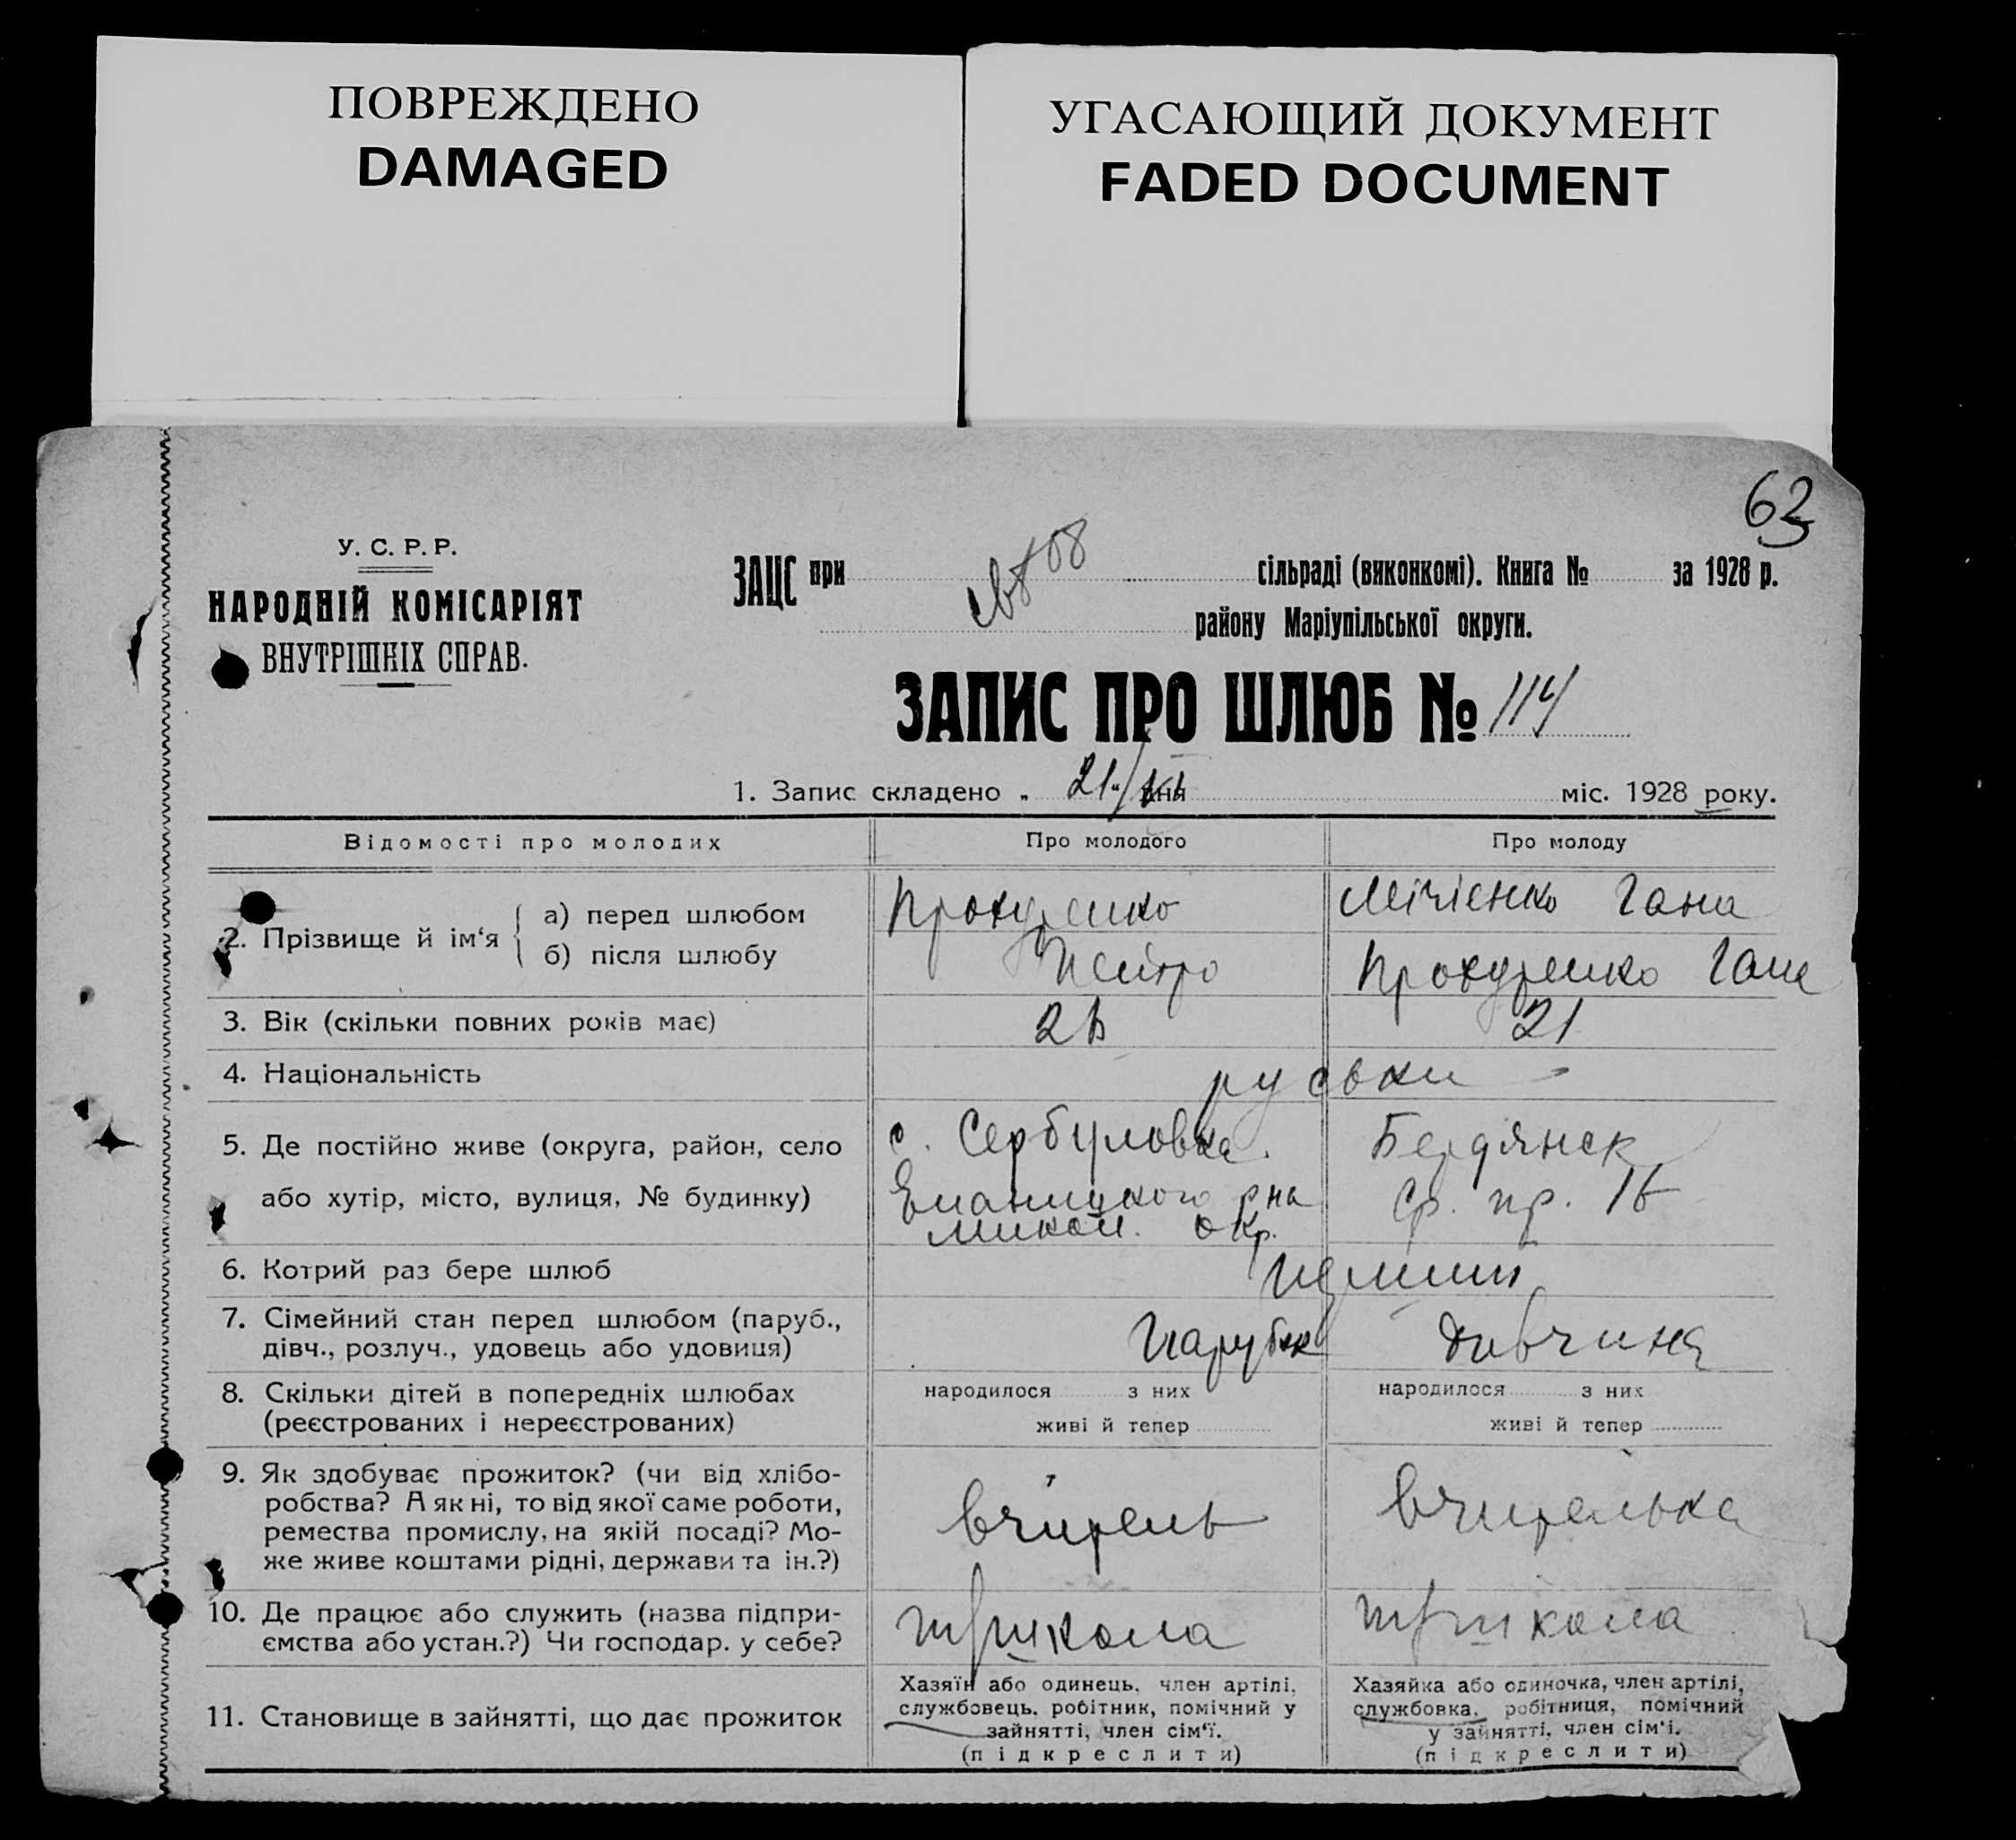 ПОВРЕЖДЕНО
DAMAGED
УГАСАЮЩИЙ ДОКУМЕНТ
FADED DOCUMENT
63
У. С. Р. Р.
НАРОДНІЙ КОМІСАРІЯТ
ВНУТРІШНІХ СПРАВ.
ЗАЦС при сільраді (виконкомі). Книга № за 1928 р.
району Маріупільської округи.
ЗАПИС ПРО ШЛЮБ № 114
1. Запис складено „ 21 дня міс. 1928 року.
Відомості про молодих Про молодого Про молоду
2. Прізвище й ім‘я
а) перед шлюбом
б) після шлюбу
Петро
Гана
3. Вік (скільки повних років має) 21
4. Національність руськи
5. Де постійно живе (округа, район, село
або хутір, місто, вулиця, № будинку)
с. Сербуловка.
Еланицкого рна
Микол. окр.
Бердянск
Ср. пр. 16
6. Котрий раз бере шлюб
7. Сімейний стан перед шлюбом (паруб.,
дівч., розлуч., удовець або удовиця)
Парубок дивчина
8. Скільки дітей в попередніх шлюбах
(реєстрованих і нереєстрованих)
народилося з них
живі й тепер
народилося з них
живі й тепер
9. Як здобуває прожиток? (чи від хлібо-
робства? А як ні, то від якої саме роботи,
ремества промислу, на якій посаді? Мо-
же живе коштами рідні, держави та ін.?)
вчитель вчителька
10. Де працює або служить (назва підпри-
ємства або устан.?) Чи господар. у себе?
11. Становище в зайнятті, що дає прожиток
Хазяїн або одинець, член артілі,
службовець, робітник, помічний у
зайнятті, член сім‘ї.
(підкреслити)
Хазяйка або одиночка, член артілі,
службовка, робітниця, помічний
у зайнятті, член сім‘ї.
(підкреслити)